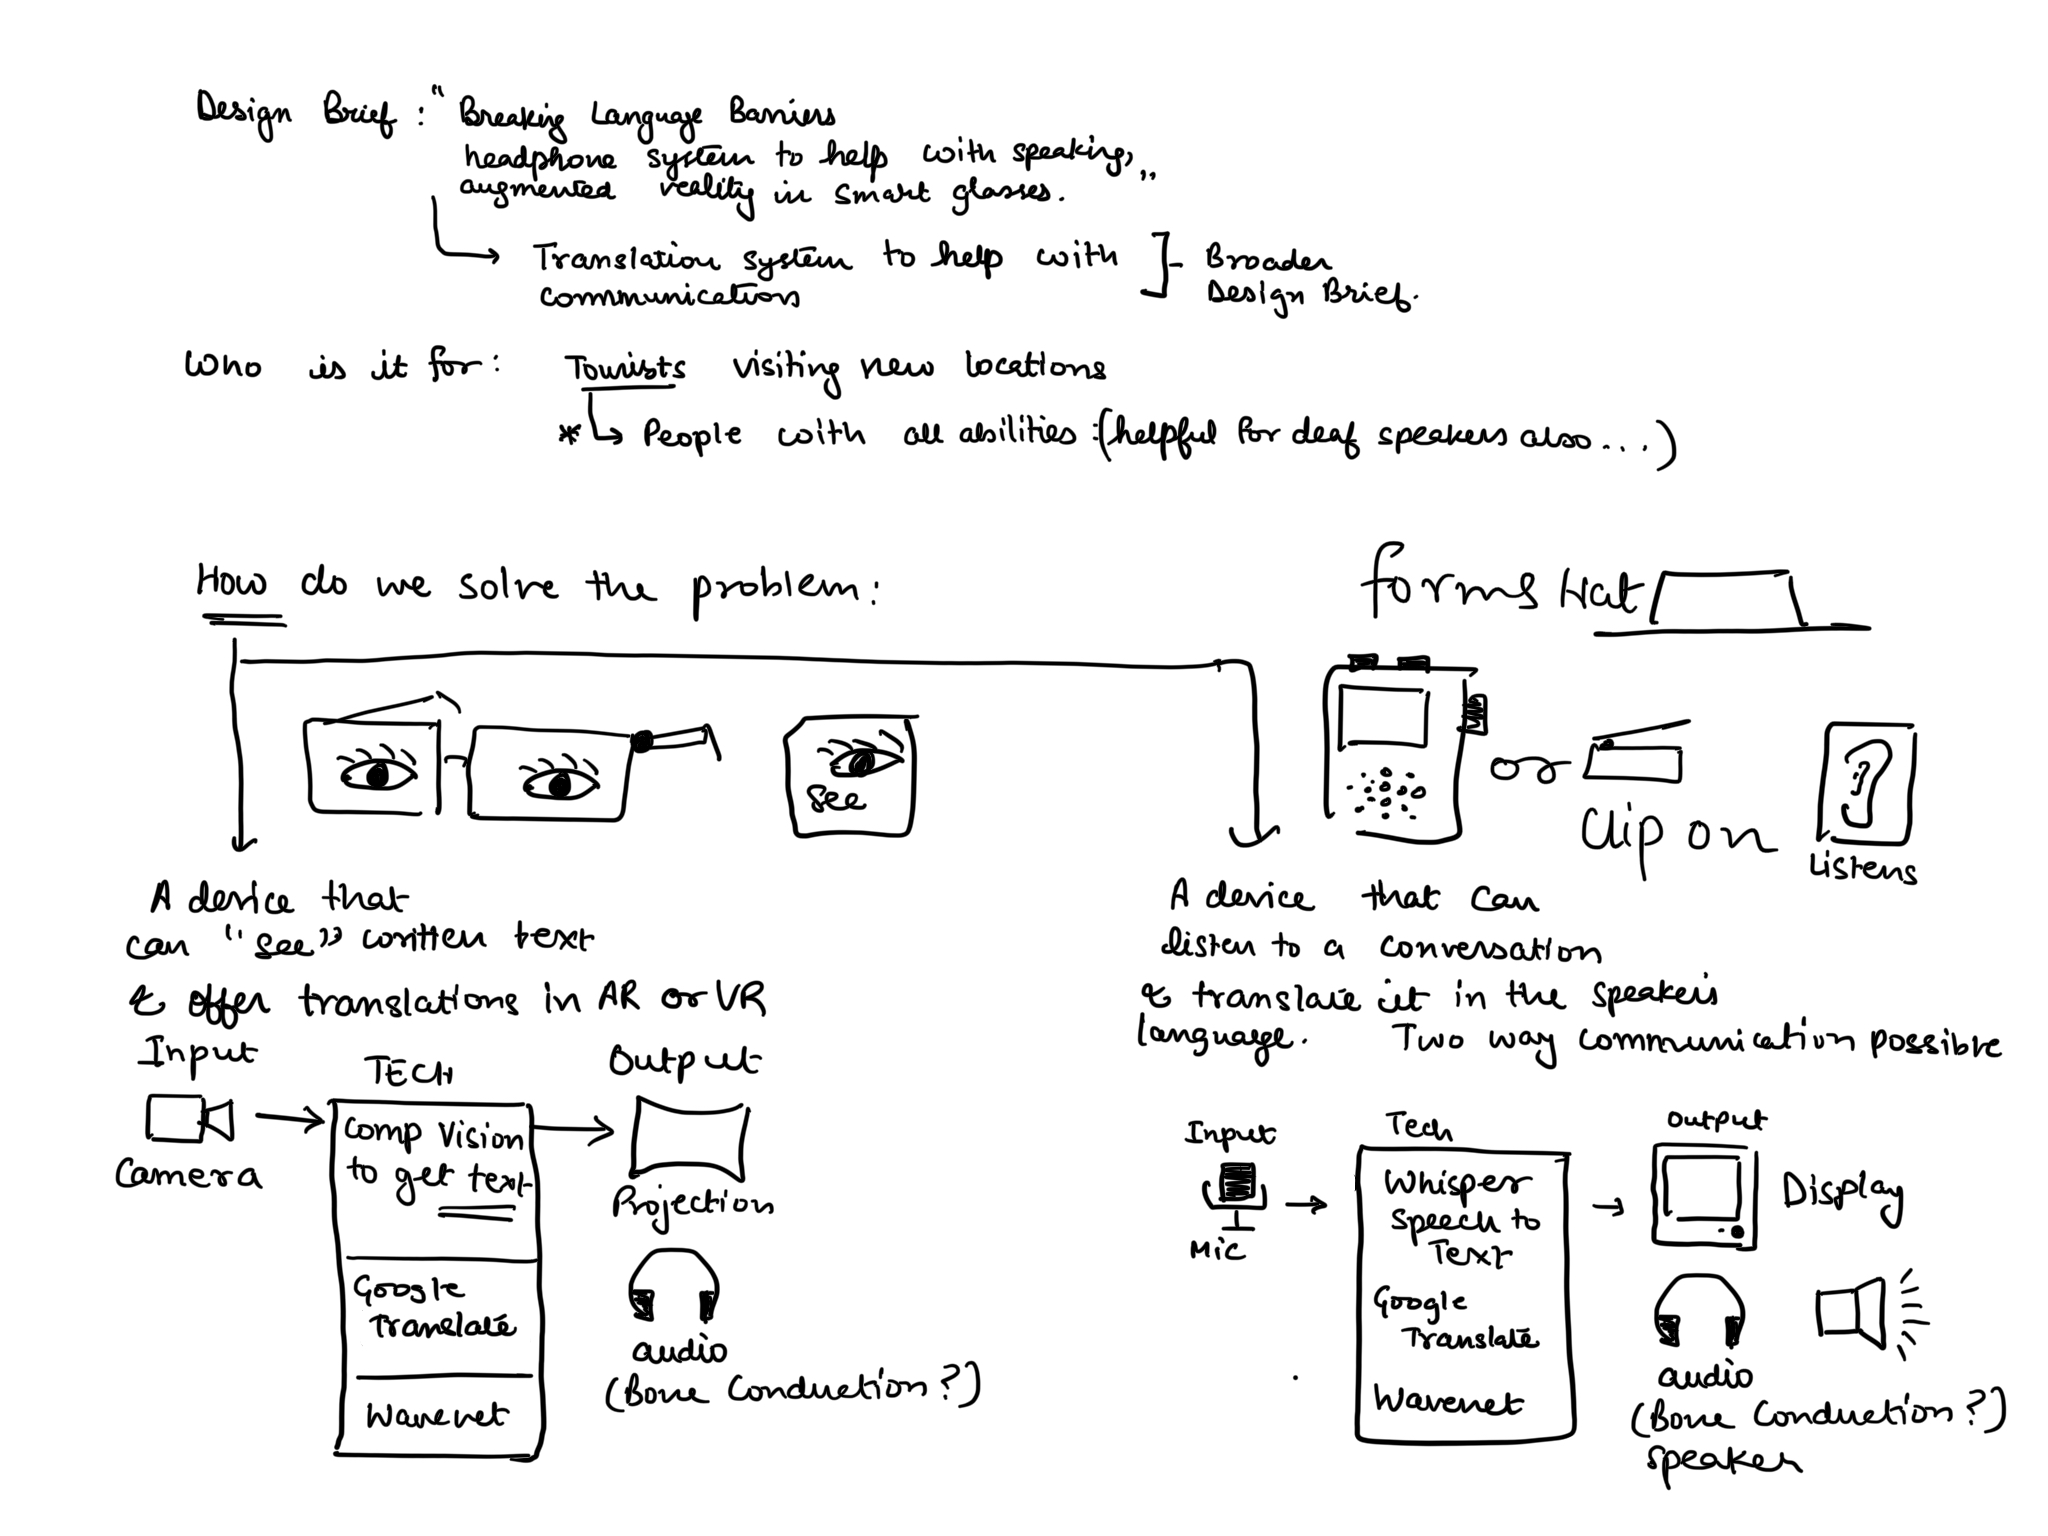 Design Brief : " Breaking Language Barriers
headphone system to help with speaking,
augmented reality in smart glasses. "
Translation system to help with
communication
Broader
Design Brief.
Who is it for : Tourists visiting new locations
* People with all abilities :(helpful for deaf speakers also...)
How do we solve the problem :
forms Hat
see
Clip on
Listens
A device that
can "see" written text
& offer translations in AR or VR
Input
TECH
Output
Camera
Comp Vision
to get text
Google
Translate
Wavenet
Projection
audio
(Bone Conduction?)
A device that can
listen to a conversation
& translate it in the speakers
language. Two way communication possible
Input
Tech
output
Mic
Whisper
Speech to
Text
Google
Translate
Wavenet
Display
audio
(Bone Conduction?)
speaker